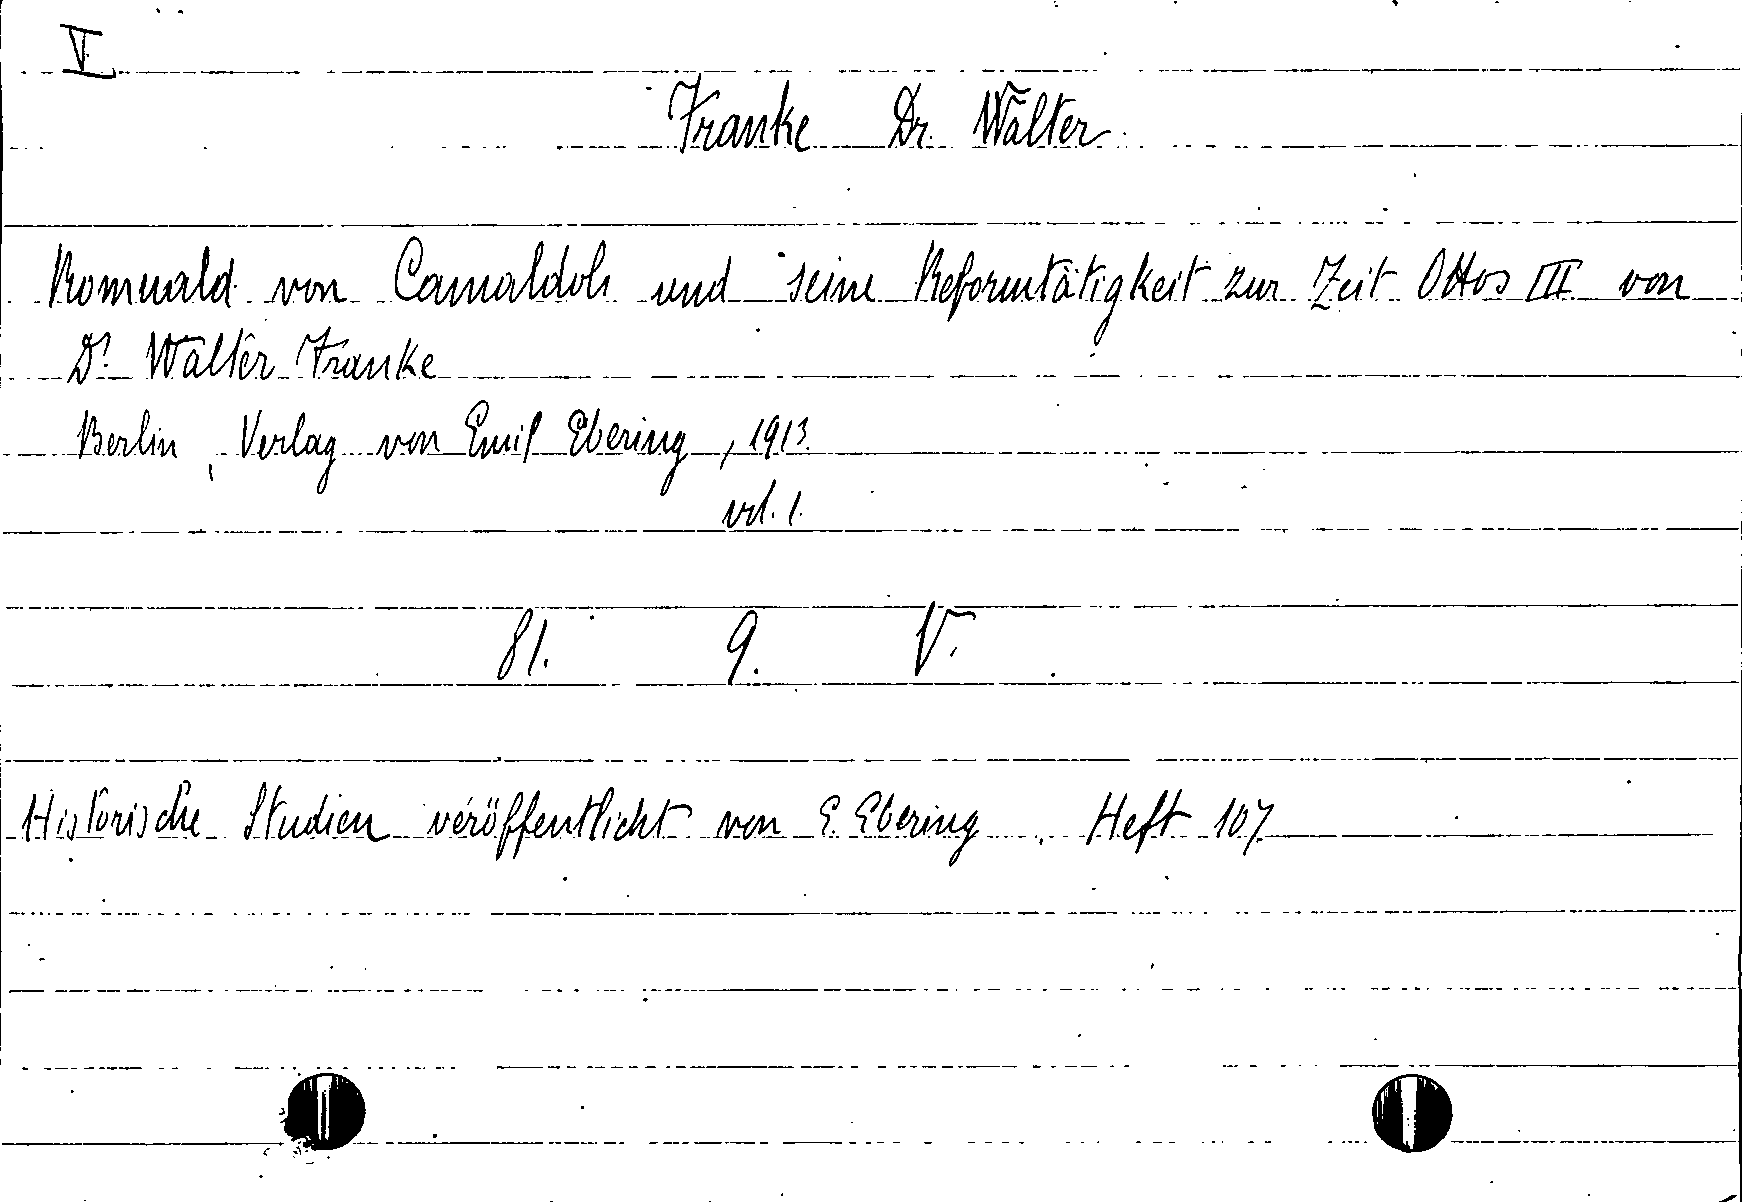 V
Franke Dr. Walter
Romuald von Camaldoli und seine Reformtätigkeit zur Zeit Ottos III von
Dr. Walter Franke
Berlin, Verlag von Emil Ebering, 1913.
vol. 1.
81. 9. V.
Historische Studien veröffentlicht von E. Ebering. Heft 107.